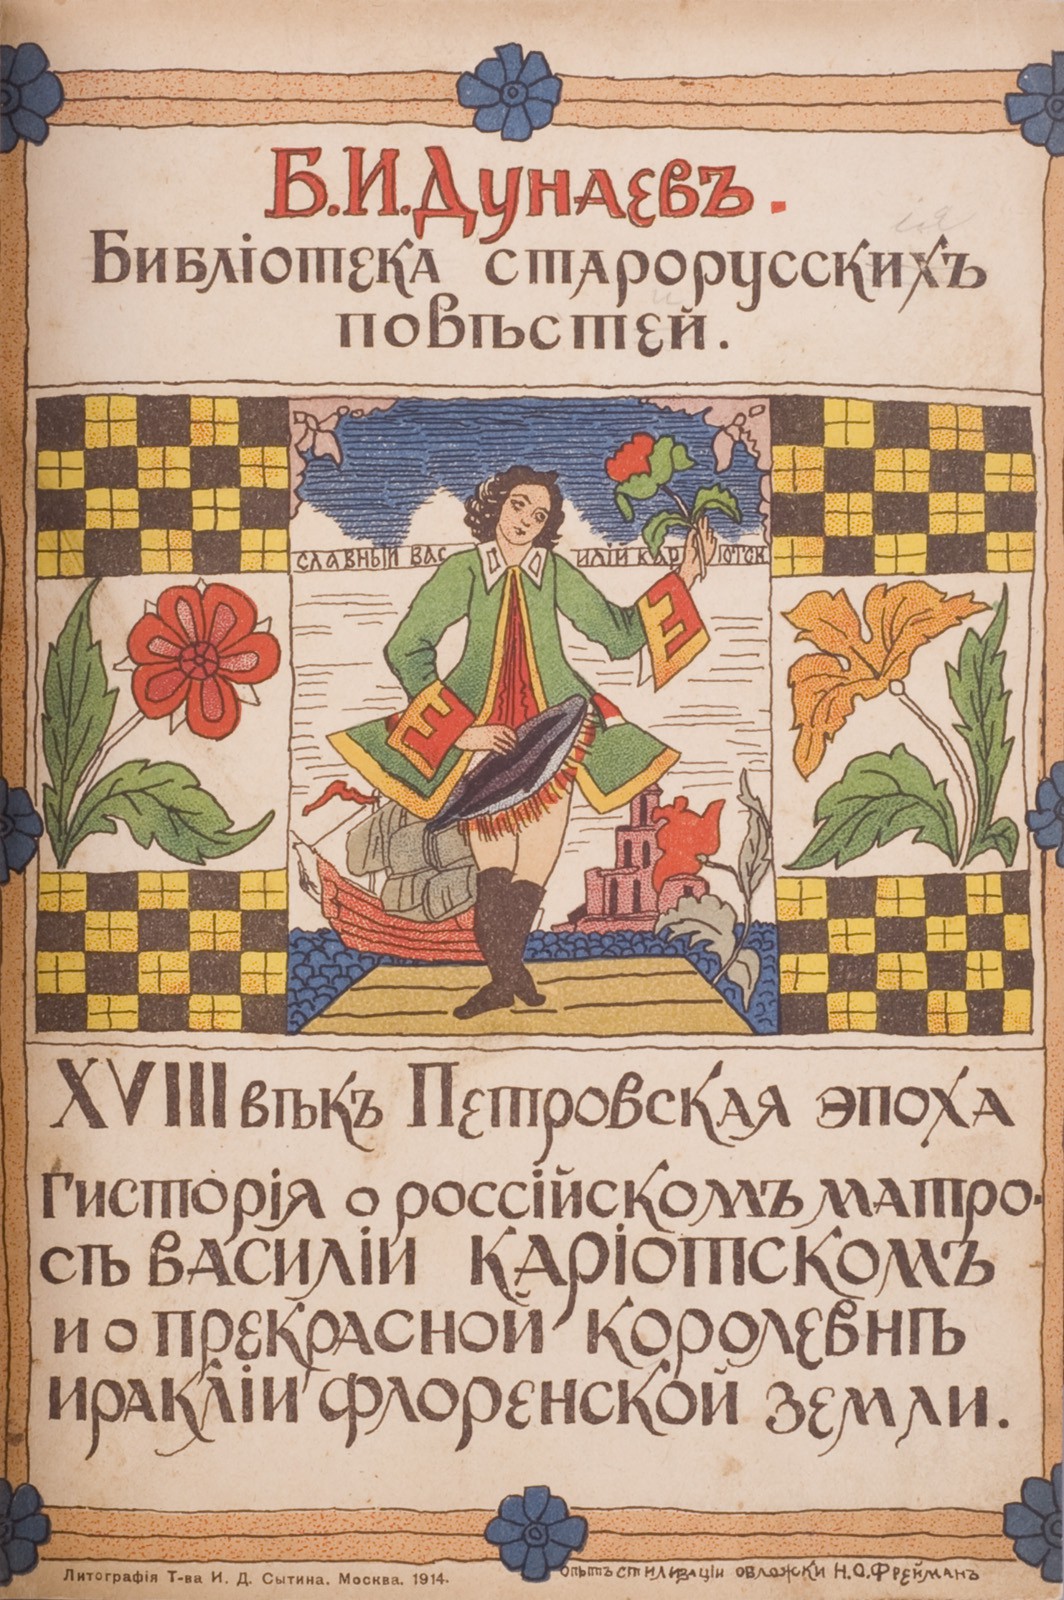 Б.И.Дунаевъ.
Библіотека старорусскихъ
повѣстей.
СЛАВНЫЙ ВАС ИЛІЙ КАР ІОТСК
XVIII вѣкъ Петровская эпоха
Гисторія о россійскомъ матро-
сѣ Василіи Каріотскомъ
и о прекрасной королевнѣ
Иракліи Флоренской земли.
Литографія Т-ва И. Д. Сытина. Москва. 1914.
опытъ стилизаціи обложки Н.О.Фрейманъ